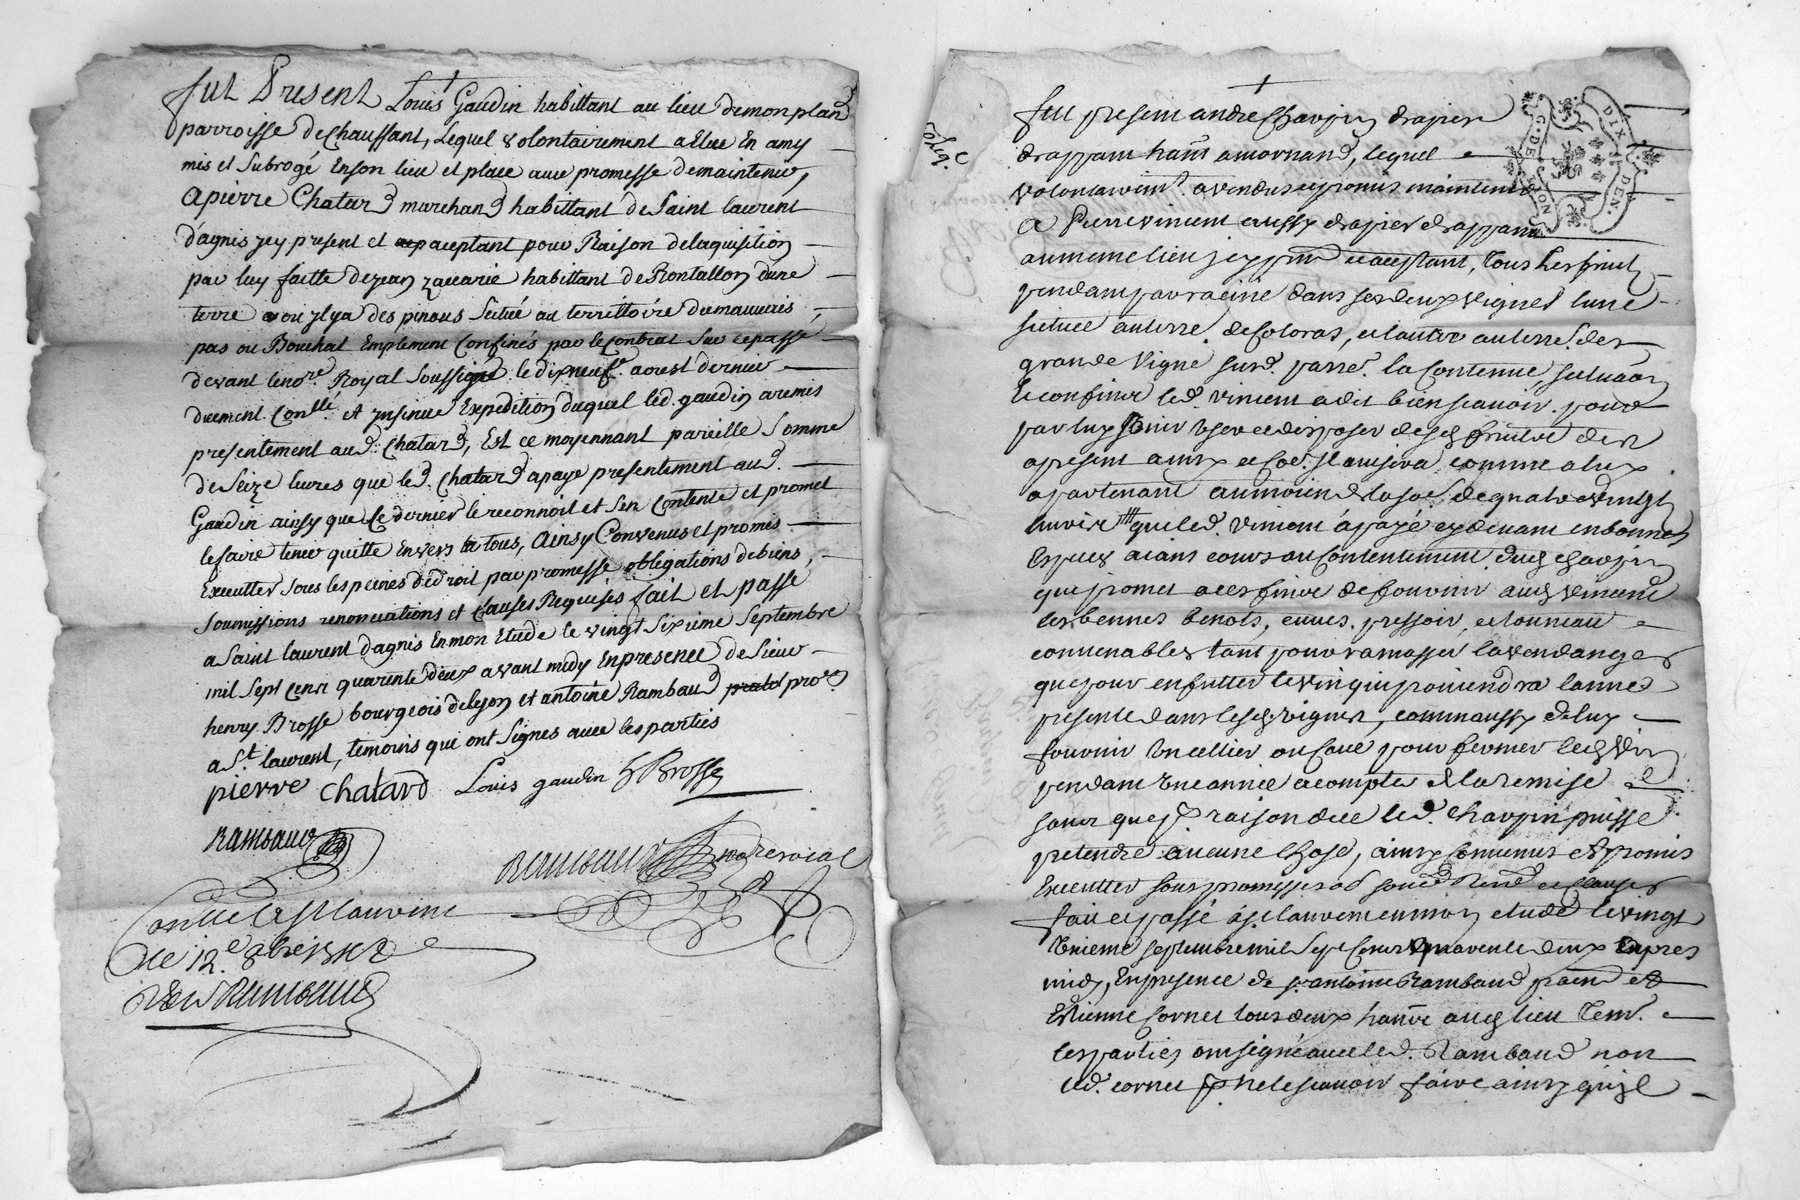 fut Present Louis Gaudin habittant au lieu demonpland
parroisse de Chaussant, Lequel volontairement a Elleu En amy
mis et Subrogé Enson lieu et place avec promesse demaintenir,
a pierre Chatard marchand habittant de Saint laurent
d'agnis jcy present et acceptant pour Raison delaquisition
par luy faitte dejean zacarie habittant deRontallon dune
terre ou jlya des pinous Scitué au territtoire dumauvais
pas ou Bouchat Emplement Confinés par leContrat Sur cepassé
devant lenore. Royal Soussigné le dixneuf. aoust dernier
duement Conllé et jnsinué Expedition duquel led. gaudin aremis
presentement aud. Chatard, Est ce moyennant pareille Somme
de Seize livres que led. Chatard apayé presentement aud.
Gaudin ainsy que Ce dernier le reconnoit et Sen Contente et promet
lefaire tenir quitte Envers tous, Ainsy Convenus et promis
Executter sous les peines dedroit par promesse obligations debiens,
Soumissions renonciations et Clauses Requises fait et passé
a Saint laurent dagnis Enmon Etude le vingt Sixieme Septembre
mil Sept Cens quarente deux avant midy Enpresence de Sieur
henry Brosse bourgeois delyon et antoine Rambaud pror.
a St. laurent, temoins qui ont Signés avec les parties
pierre Chatard Louis gaudin h Brosse
Rambaud
Rambaud noreroial
Conllé a St laurent
ce 12e 8bre 1742
Rambaud
fut present andre Chavpin drapier
drappant hant. amornand, lequel
volontairemt. avendu et promis maintenir
A Pierre vincent aussy drapier drappant
aumeme lieu jcy pnt. et acceptant, tous les fruits
pendant par racine dans ses deux vignes lune
scituée auterre. de Coloras, et lautre auterre. des
grande Vigne surd. parre. la Contenue, scituaon
et confins led. vincent a dit bien scavoir, pour
par luy jouir user et disposer desd. fruits des
apresent ainsy et Coe. jl avisera comme a luy
apartenant aumoien de lasoe. de quatre vingt
livres que led. vincent a payé cydevant en bonnes
Especes aians cours au Contentement dud. Chavpin
qui promet a ces fins de fournir aud. vincent
les bennes benots, cuves, pressoir, et tonneau
convenables tant pour ramasser la vendange
que pour enfutter le vin qui proviendra lannée
presente dans lesd. vignes, comm aussy de luy
fournir un cellier ou Cave pour fermer led. vin
pendant une année a compter de la remise
sans que pr. raison de ce led. Chavpin puisse
pretendre aucune Chose, ainsy Convenus et promis
Executter sous promesses ob soued. Rened. et Clauses
fait et passé a st laurent en mon etude le vingt
Unieme septembre mil Sept Cens quarente deux apres
midy, En presence de sr. antoine Rambaud et
Etienne Cornet tous deux hant aud. lieu Temt.
les parties ont signé avec led. Rambaud non
led. cornet pr ne le scavoir faire ainsy quil
C. DE LYON
DIX DEN.